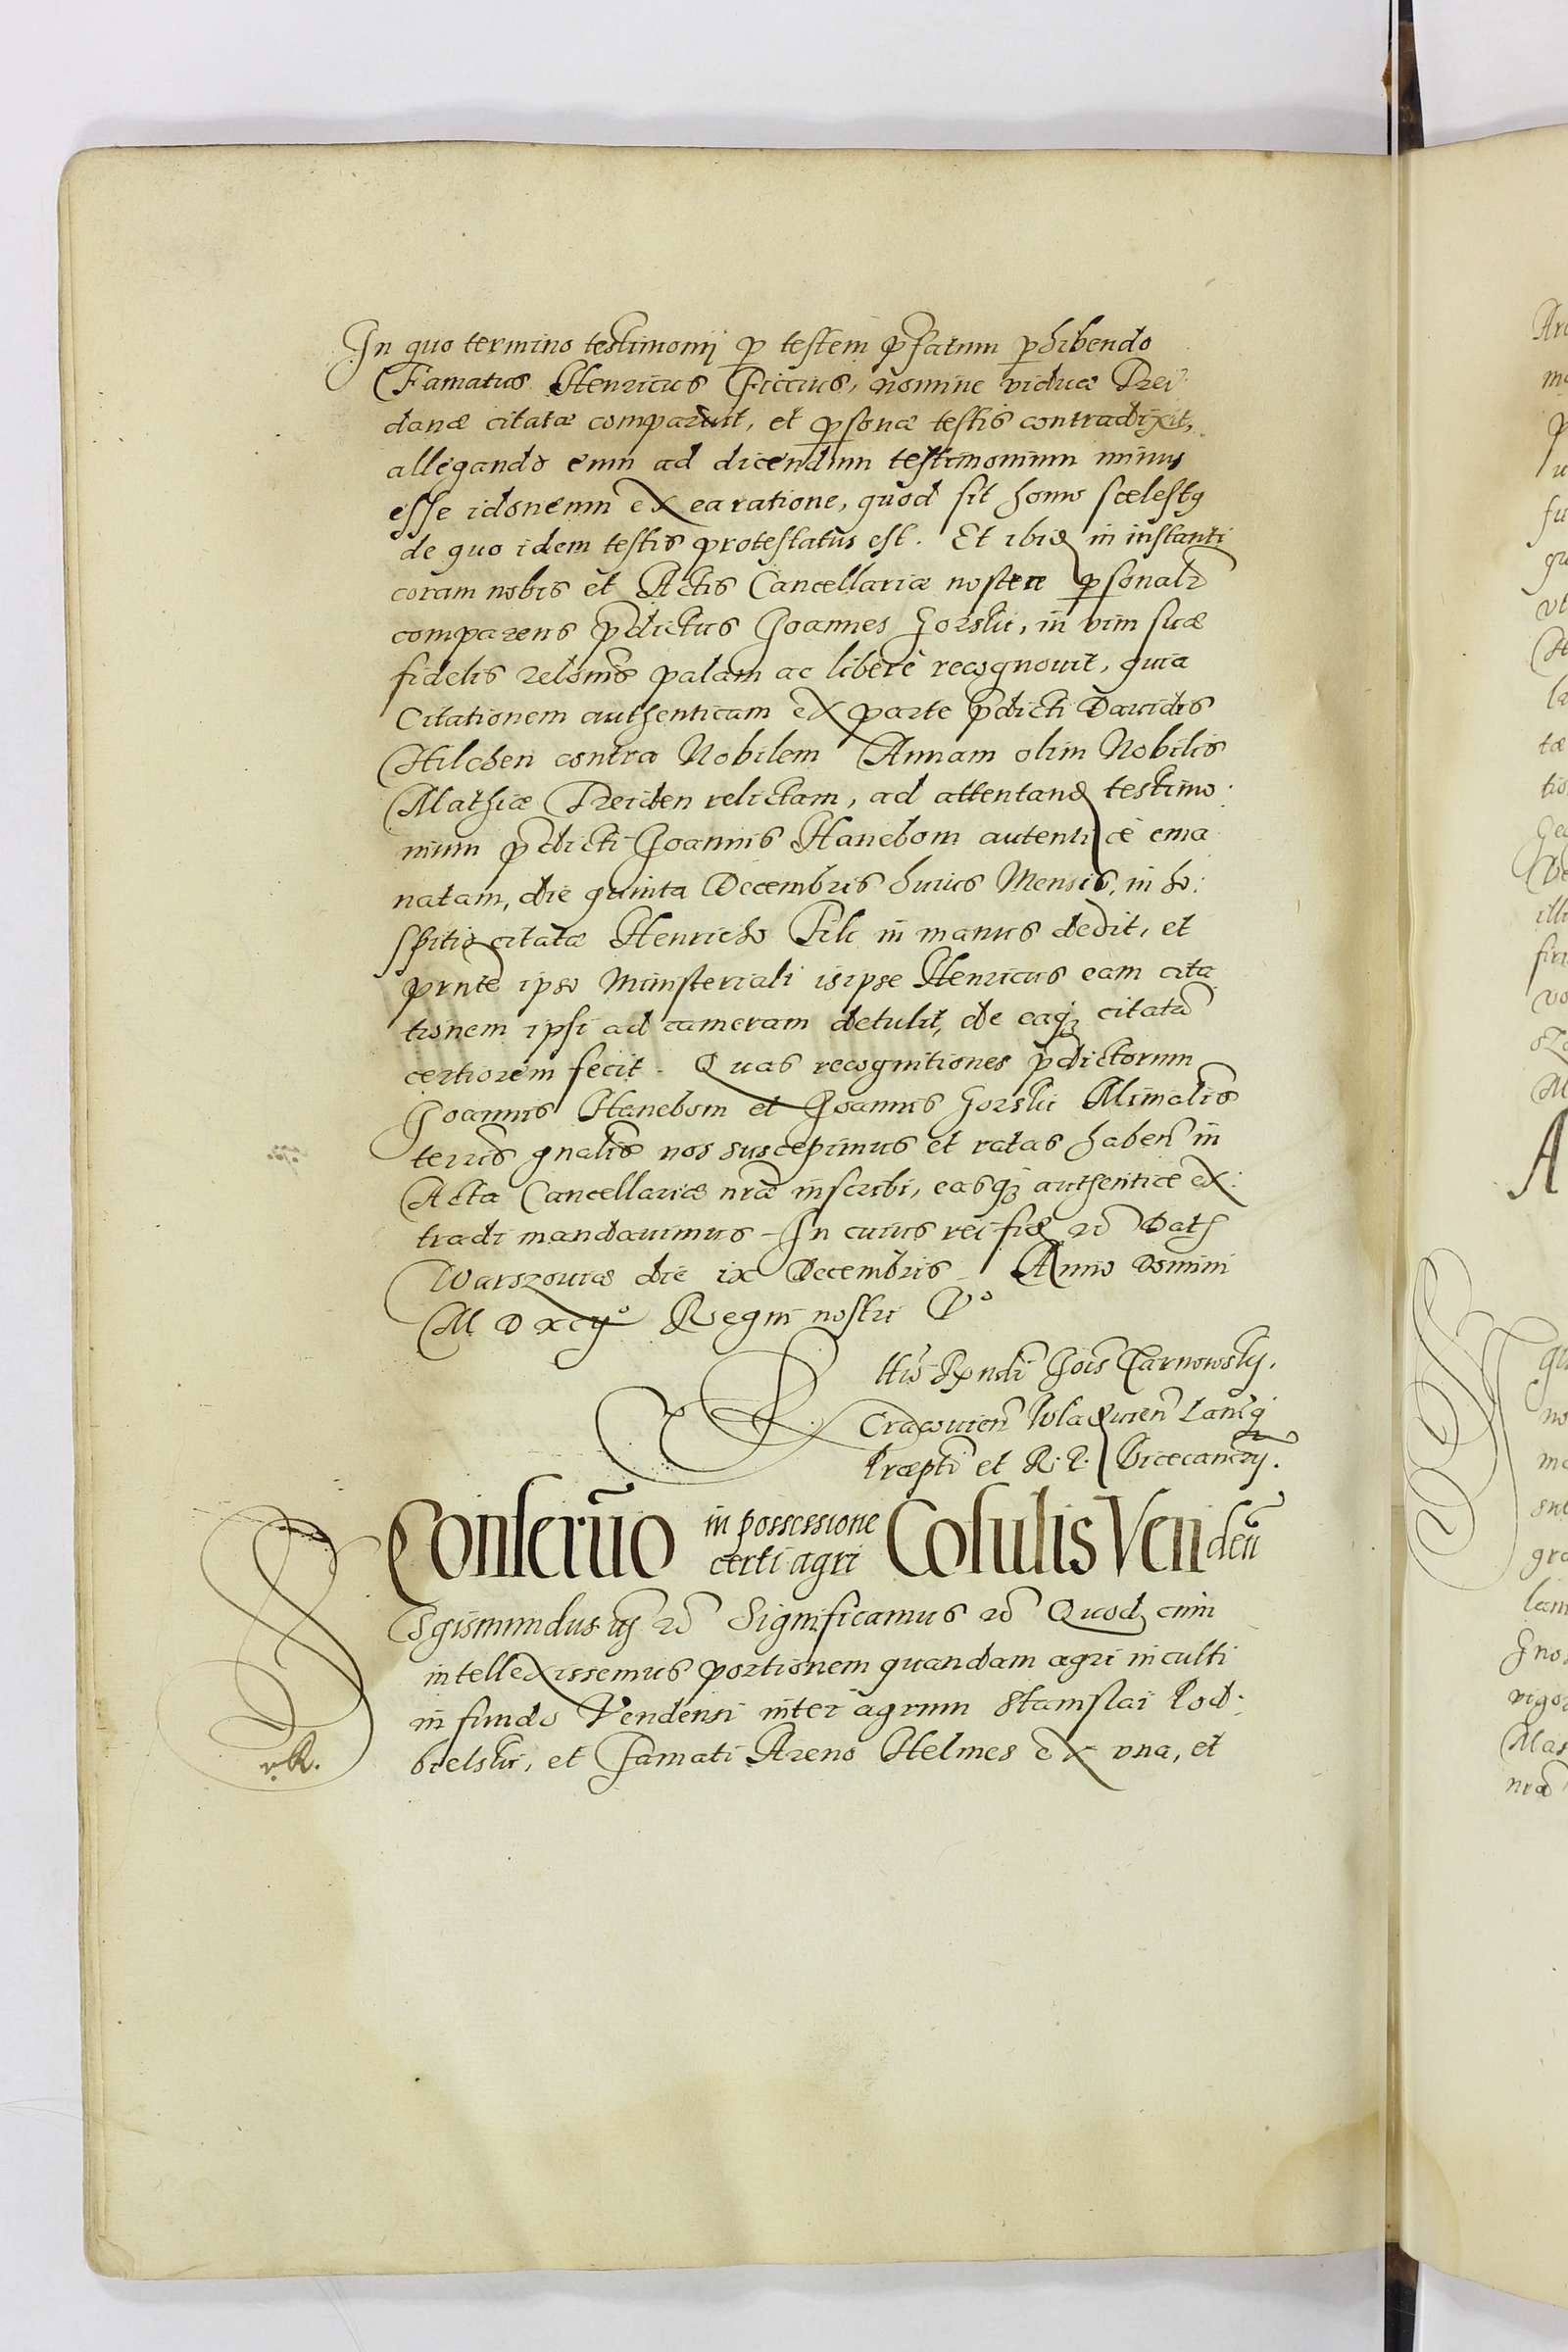 In quo termino testimonij p testem pfatum phibendo
Famatus Henricus Ficcius, nomine viduæ Trei
danæ citatæ comparuit, et psonæ testis contradixit,
allegando eum ad dicendum testimonium minus
esse idoneum ex ea ratione, quod sit homo scelestq
de quo idem testis protestatus est. Et ibid in instanti
coram nobis et Actis Cancellariæ nostre psonalr
comparens pdictus Joannes Gorski, in vim suæ
fidelis relonis palam ac liberè recognovit, quia
Citationem authenticam ex parte pdicti Davidis
Hilchen contra Nobilem Annam olim Nobilis
Mathiæ Treiden relictam, ad attentand testimo:
nium pdicti Joannis Hanebom autenticè ema
natam, die quinta Decembris huius Mensis, in ho:
spitio citatæ Henricho Fili in manus dedit, et
prnte ipso Ministeriali is ipse Henricus eam cita
tionem ipsi ad cameram detulit, de eaq citatã
certiorem fecit. Quas recognitiones pdictorum
Joannis Hanebom et Joannis Gorski Mimalis
terris gnalis nos suscepimus et ratas haben in
Acta Cancellariæ nræ inscribi, easq authentice ex:
tradi mandavimus. In cuius rei fid Dat
Warszoviæ die ix Decembris Anno Domini
M D xcijº Regni nostri Vº
Rndi Jois Tarnowsky.
Cracovien Wladivien Lancq
Præpti et R. P. Vicecancrij.
Conseruõ in possessione
certi agri Cõsulis Venden̄
Sgismundus iij Significamus Quod cum
intellexissemus portionem quandam agri inculti
in fundo Vendensi inter agrum Stanislai Pod:
bielski, et Famati Areno Helmes ex vna, et
vR.